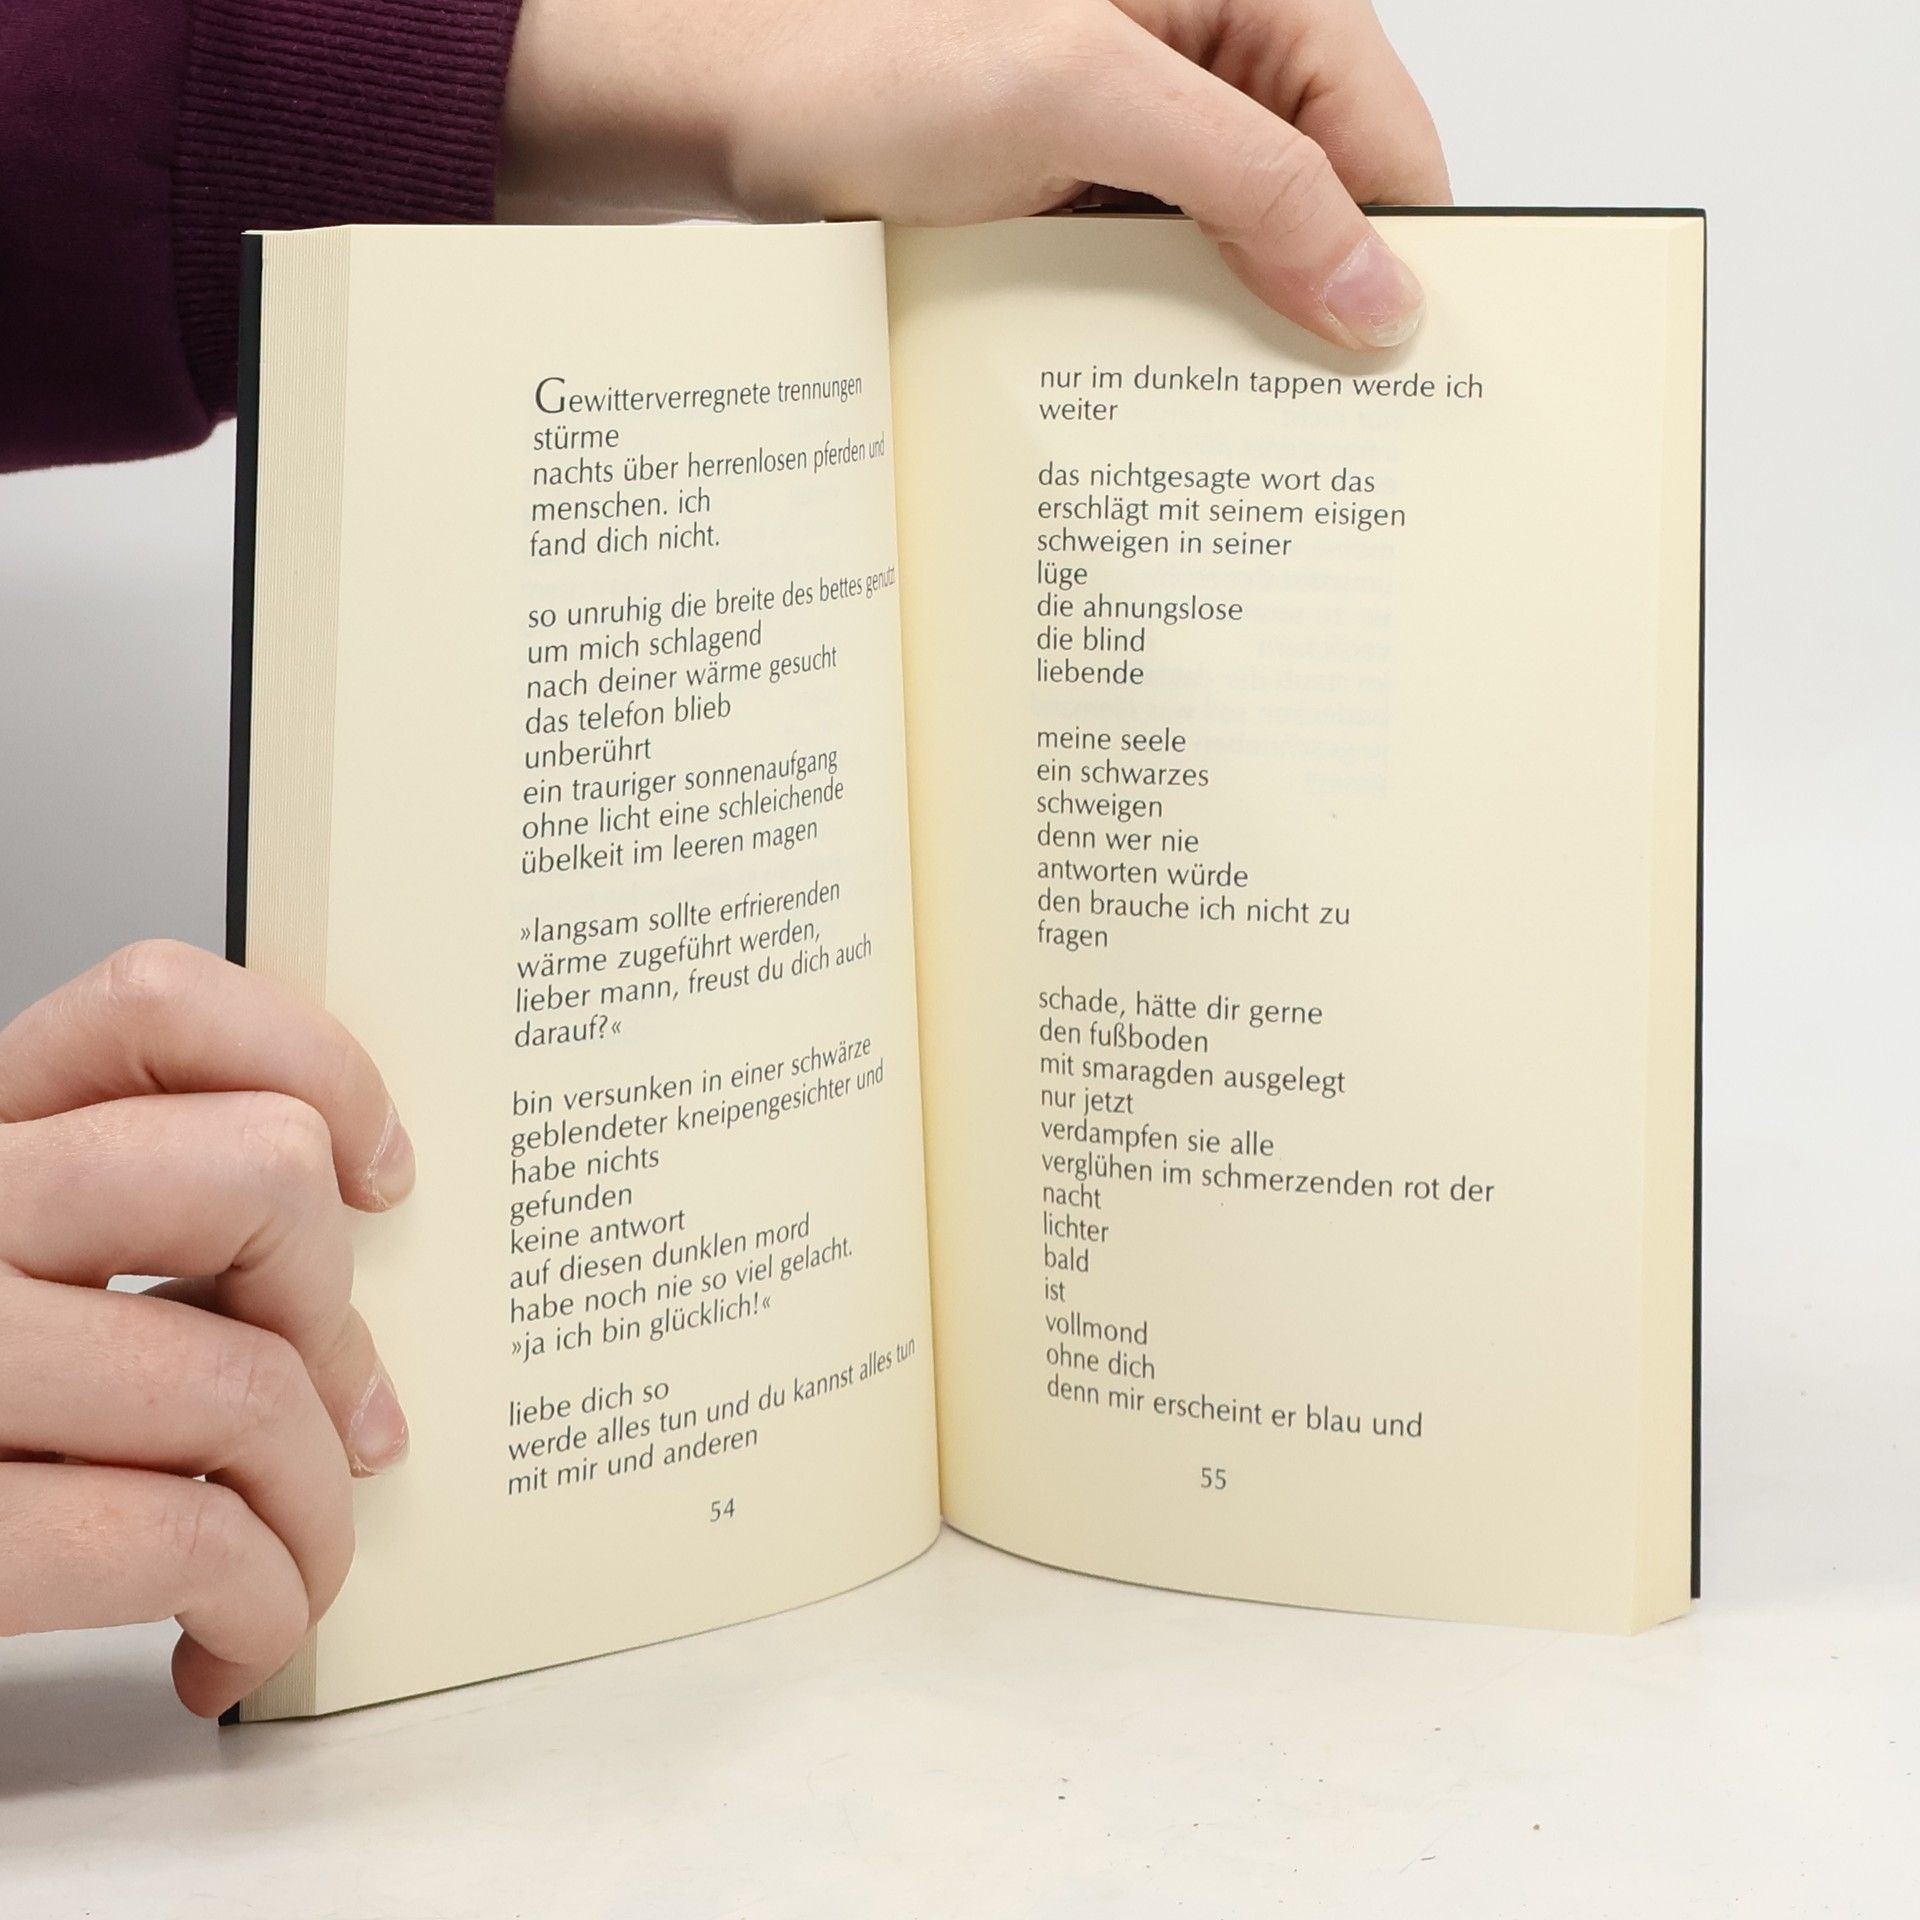 Gewitterverregnete trennungen
stürme
nachts über herrenlosen pferden und
menschen. ich
fand dich nicht.
so unruhig die breite des bettes genutzt
um mich schlagend
nach deiner wärme gesucht
das telefon blieb
unberührt
ein trauriger sonnenaufgang
ohne licht eine schleichende
übelkeit im leeren magen
»langsam sollte erfrierenden
wärme zugeführt werden,
lieber mann, freust du dich auch
darauf?«
bin versunken in einer schwärze
geblendeter kneipengesichter und
habe nichts
gefunden
keine antwort
auf diesen dunklen mord
habe noch nie so viel gelacht.
»ja ich bin glücklich!«
liebe dich so
werde alles tun und du kannst alles tun
mit mir und anderen
54
nur im dunkeln tappen werde ich
weiter
das nichtgesagte wort das
erschlägt mit seinem eisigen
schweigen in seiner
lüge
die ahnungslose
die blind
liebende
meine seele
ein schwarzes
schweigen
denn wer nie
antworten würde
den brauche ich nicht zu
fragen
schade, hätte dir gerne
den fußboden
mit smaragden ausgelegt
nur jetzt
verdampfen sie alle
verglühen im schmerzenden rot der
nacht
lichter
bald
ist
vollmond
ohne dich
denn mir erscheint er blau und
55